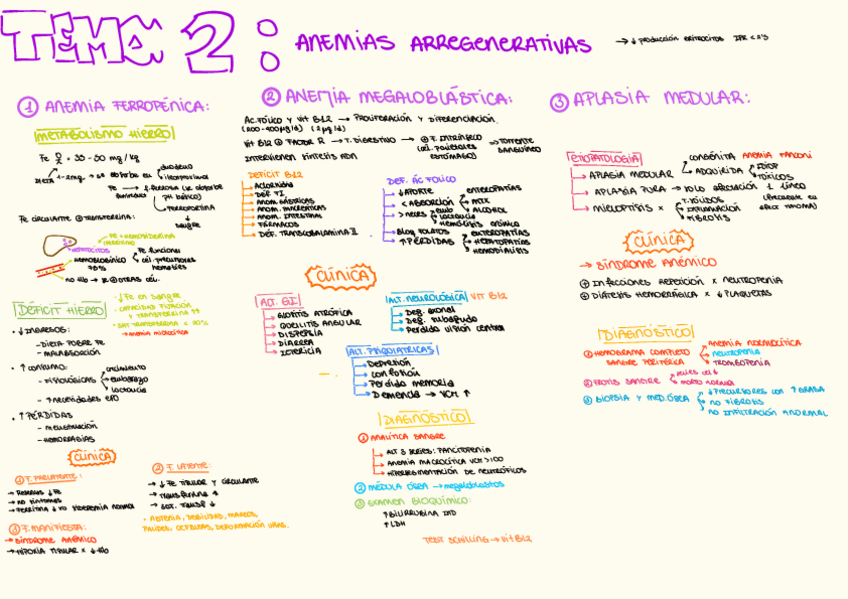 TEMA 2:
ANEMIAS ARREGENERATIVAS
→ ↓ producción eritrocitos IPR <2'5
① ANEMIA FERROPÉNICA:
METABOLISMO HIERRO
Fe ♀ = 35 - 50 mg/kg
Dieta → 1-2mg → se absorbe en
duodeno
Fe circulante ⊕ transferrina:
Fe + hemosiderina
HEPATOCITOS
HEMOGLOBÍNICO
Fe funcional
cél. precursoras
hematíes
DÉFICIT HIERRO
- ↓ Fe en sangre
- CAPACIDAD FIJACIÓN
Y TRANSFERRINA ↑↑
→ ANEMIA MICROCÍTICA
• ↓ INGRESOS:
- DIETA POBRE Fe
- MALABSORCIÓN
• ↑ CONSUMO:
- FISIOLÓGICAS
crecimiento
embarazo
lactancia
- ↑ necesidades EPO
• ↑ PÉRDIDAS
- MENSTRUACIÓN
- HEMORRAGIAS
CLÍNICA
① F. PRELATENTE:
→ Reservas ↓ Fe
→ no síntomas
→ FERRITINA ↓ no
② F. LATENTE:
→ ↓ Fe TISULAR Y CIRCULANTE
→ TRANSFERRINA ↑
→ SAT. TRANSF ↓
• ASTENIA, DEBILIDAD, MAREOS,
PALIDEZ, CEFALEAS, DEFORMACIÓN UÑAS.
③ F. MANIFIESTA:
→ SÍNDROME ANÉMICO
→ HIPOXIA TISULAR x ↓ Hb
② ANEMIA MEGALOBLÁSTICA:
AC. FÓLICO Y VIT B12 → PROLIFERACIÓN Y DIFERENCIACIÓN.
(200-400µg/d) (2µg/d)
VIT B12 ⊕ FACTOR R → T. DIGESTIVO → ⊕ F. INTRÍNSECO → TORRENTE
(cél. parietales SANGUÍNEO
ESTÓMAGO)
INTERVIENEN SÍNTESIS ADN
DÉFICIT B12
→ Aclorhidria
→ DÉF FI
→ ANOM. GÁSTRICAS
→ ANOM. PANCREÁTICAS
→ ANOM. INTESTINAL
→ FÁRMACOS
→ DÉF. TRANSCOBALAMINA II
DEF. ÁC FÓLICO
→ ↓ APORTE
→ < ABSORCIÓN
ENTEROPATÍAS
MTX
ALCOHOL
→ > neces
emb
lactancia
Hemólisis crónica
→ Bloq FOLATOS
→ ↑ PÉRDIDAS
ENTEROPATÍAS
HEPATOPATÍAS
HEMODIÁLISIS
CLÍNICA
ALT. GI
→ GLOSITIS ATRÓFICA
→ QUEILITIS ANGULAR
→ DISPEPSIA
→ DIARREA
→ ICTERICIA
ALT. NEUROLÓGICA VIT B12
→ Deg. axonal
→ Pérdida visión central
ALT. PSIQUIÁTRICAS
→ Depresión
→ confusión
→ Pérdida memoria
→ Demencia → VCM ↑
DIAGNÓSTICO
① ANALÍTICA SANGRE
→ ALT 3 SERIES: PANCITOPENIA
→ ANEMIA MACROCÍTICA VCM >100
→ HIPERSEGMENTACIÓN DE NEUTRÓFILOS
② MÉDULA ÓSEA → megaloblastos
③ EXAMEN BIOQUÍMICO:
↑ BILIRRUBINA IND
↑ LDH
TEST SCHILLING → VIT B12
③ APLASIA MEDULAR:
ETIOPATOLOGÍA
→ APLASIA MEDULAR
CONGÉNITA ANEMIA FANCONI
ADQUIRIDA
IDIOP
TÓXICOS
→ APLASIA PURA → SOLO AFECTACIÓN 1 LÍNEA
→ MIELOPTISIS x
INFLAMACIÓN
FIBROSIS
CLÍNICA
→ SÍNDROME ANÉMICO
⊕ INFECCIONES REPETICIÓN x NEUTROPENIA
⊕ DIÁTESIS HEMORRÁGICA x ↓ PLAQUETAS
DIAGNÓSTICO
① HEMOGRAMA COMPLETO
SANGRE PERIFÉRICA
ANEMIA NORMOCÍTICA
NEUTROPENIA
TROMBOPENIA
② FROTIS SANGRE
morfo normal
③ BIOPSIA Y MED. ÓSEA
↓ PRECURSORES CON ↑ GRASA
NO FIBROSIS
NO INFILTRACIÓN ANORMAL